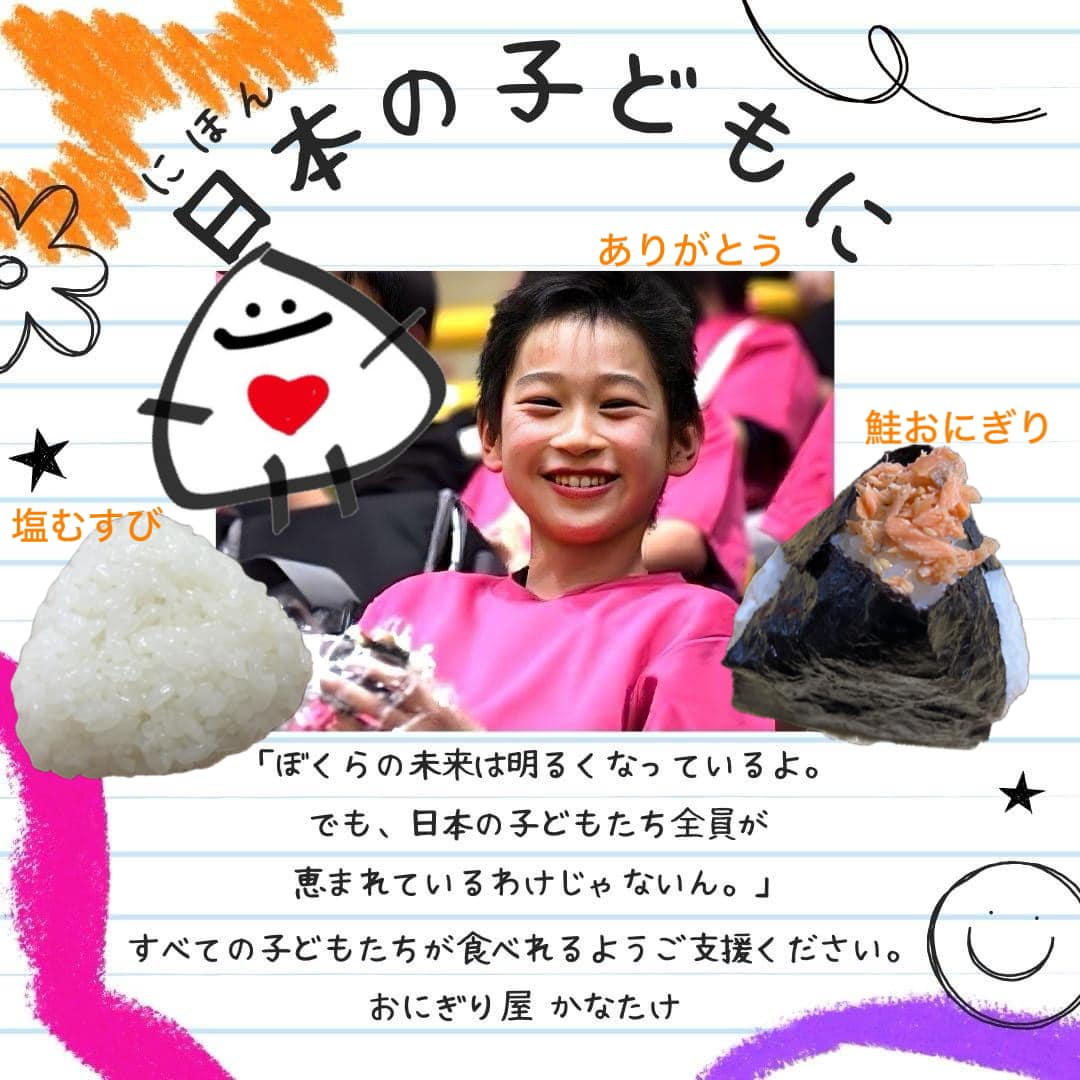 にほん
日本の子どもに
ありがとう
鮭おにぎり
塩むすび
「ぼくらの未来は明るくなっているよ。
でも、日本の子どもたち全員が
恵まれているわけじゃないん。」
すべての子どもたちが食べれるようご支援ください。
おにぎり屋 かなたけ